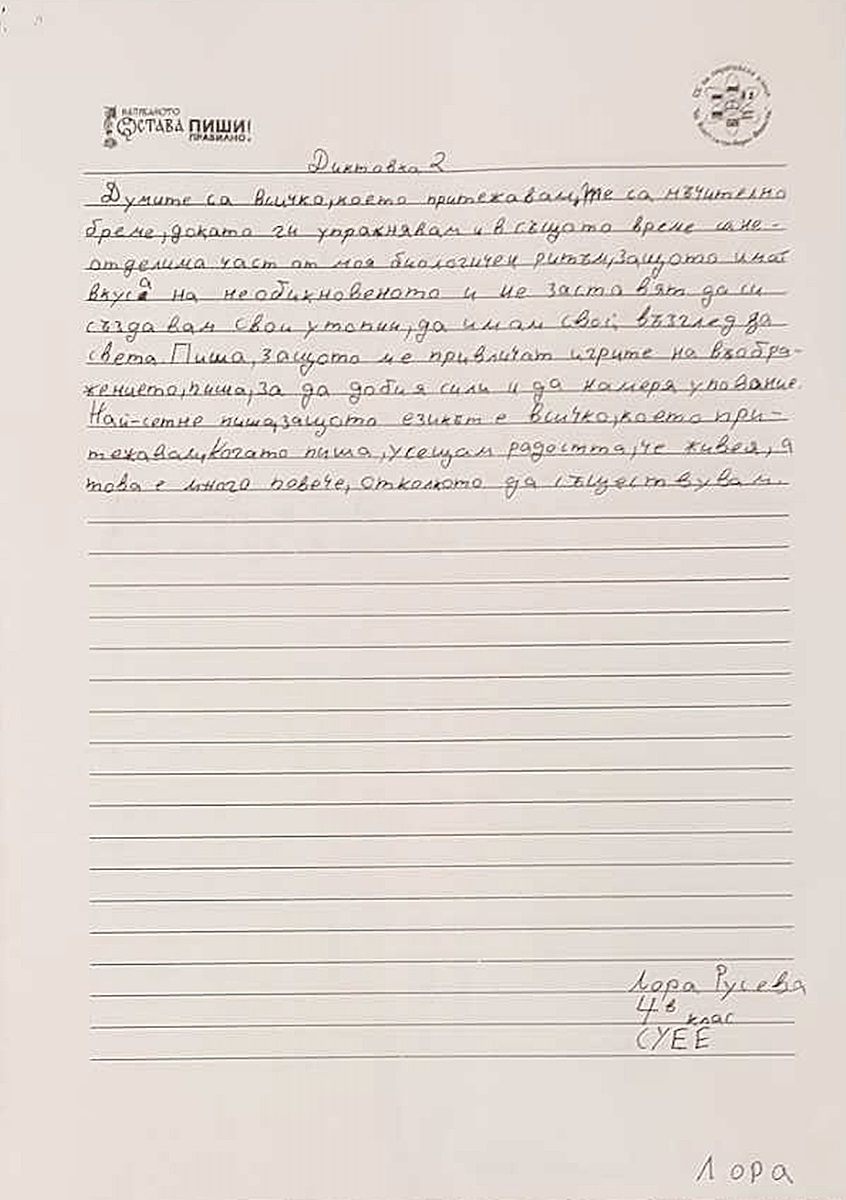 НАПИСАНОТО
ОСТАВА ПИШИ!
ПРАВИЛНО.
Диктовка 2
Думите са всичко, което притежавам, Те са мъчително
бреме, докато ги упражнявам и в същото време са не-
отделима част от моя биологичен ритъм, защото имат
вкуса на необикновеното и ме заставят да си
създавам свои утопии, да имам свой възглед за
света. Пиша, защото ме привличат игрите на въобра-
жението, пиша, за да добия сили и да намеря упование.
Най-сетне пиша, защото езикът е всичко, което при-
тежавам, Когато пиша, усещам радостта, че живея, а
това е много повече, отколкото да съществувам.
Лора Русева
4в клас
СУЕЕ
Лора